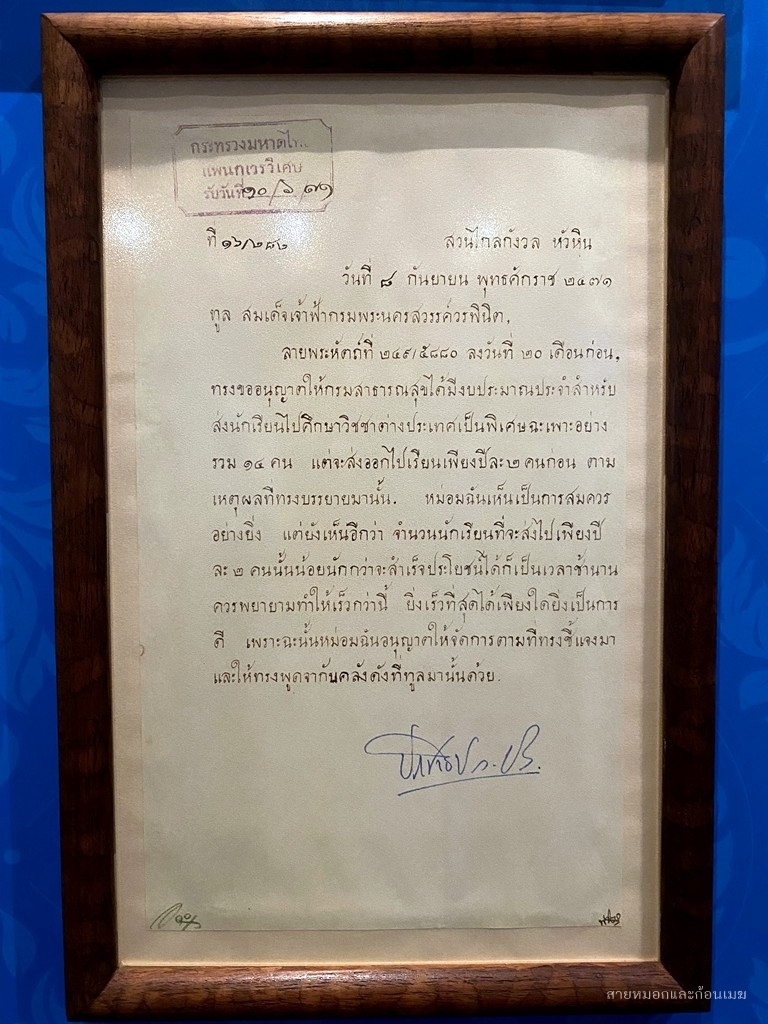 กระทรวงมหาดไ
แพนกเวรวิเศษ
รับวันที่ ๑๐/๖/๗๑
ที่ ๑๖/๒๘๒
สวนไกลกังวล หัวหิน
วันที่ ๘ กันยายน พุทธศักราช ๒๔๗๑
ทูล สมเด็จเจ้าฟ้ากรมพระนครสวรรค์วรพินิต,
ลายพระหัตถ์ที่ ๒๔๙/๕๘๘๐ ลงวันที่ ๒๐ เดือนก่อน,
ทรงขออนุญาตให้กรมสาธารณสุขได้มีงบประมาณประจำสำหรับ
ส่งนักเรียนไปศึกษาวิชชาต่างประเทศเป็นพิเศษฉะเพาะอย่าง
รวม ๑๔ คน แต่จะส่งออกไปเรียนเพียงปีละ ๒ คนก่อน ตาม
เหตุผลที่ทรงบรรยายมานั้น. หม่อมฉันเห็นเป็นการสมควร
อย่างยิ่ง แต่ยังเห็นอีกว่า จำนวนนักเรียนที่จะส่งไปเพียงปี
ละ ๒ คนนั้นน้อยนักกว่าจะสำเร็จประโยชน์ได้ก็เป็นเวลาช้านาน
ควรพยายามทำให้เร็วกว่านี้ ยิ่งเร็วที่สุดได้เพียงใดยิ่งเป็นการ
ดี เพราะฉะนั้นหม่อมฉันอนุญาตให้จัดการตามที่ทรงชี้แจงมา
และให้ทรงพูดจากับคลังดังที่ทูลมานั้นด้วย.
ประชาธิปก. ปร.
สายหมอกและก้อนเมฆ